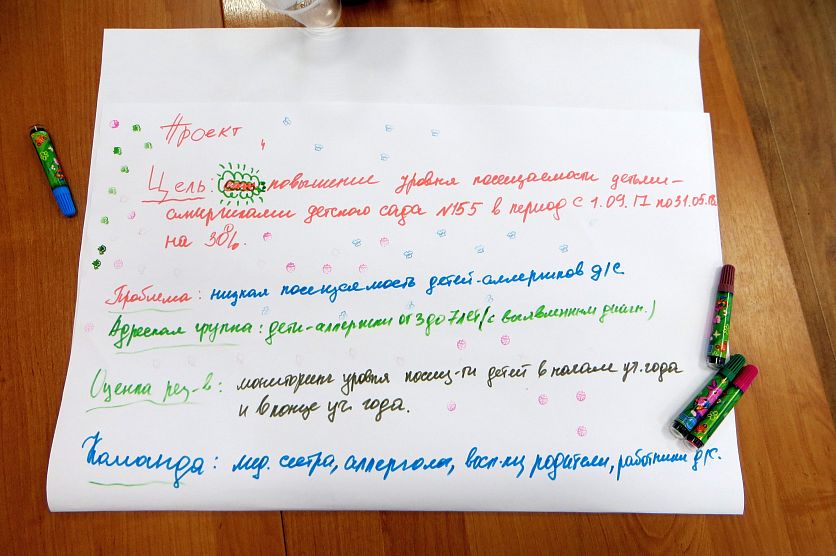 Проект
Цель: повышение уровня посещаемости детьми-
аллергиками детского сада №155 в период с 1.09.17 по 31.05.18
на 30%.
Проблема: низкая посещаемость детей-аллергиков д/с.
Адресная группа: дети-аллергики от 3 до 7 лет (с выявленным диагн.)
Оценка рез-в: мониторинг уровня посещ-ти детей в начале уч. года
и в конце уч. года.
Команда: мед. сестра, аллерголог, восп-ли, родители, работники д/с.